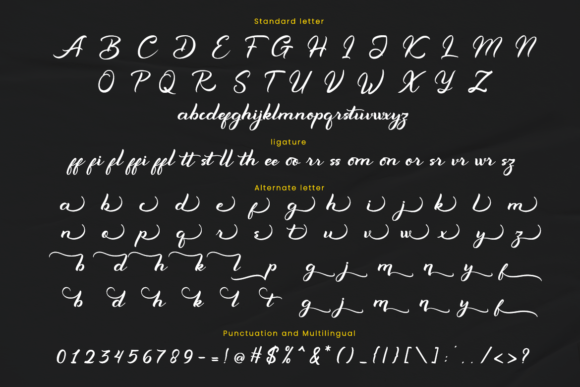 Standard letter
A B C D E F G H I J K L M N
O P Q R S T U V W X Y Z
abcdefghijklmnopqrstuvwxyz
ligature
ff fi fl ffi ffl tt st ll th ee oo rr ss om on or sr vr wr sz
Alternate letter
a b c d e f g h i j k l m
n o p q r s t u v w x y z
b d h k l p g j m n y f
b d h k l t g j m n y f
Punctuation and Multilingual
0 1 2 3 4 5 6 7 8 9 - = ! @ # $ % ^ & * ( ) _ { | } [ \ ] : ' . . / < > ?